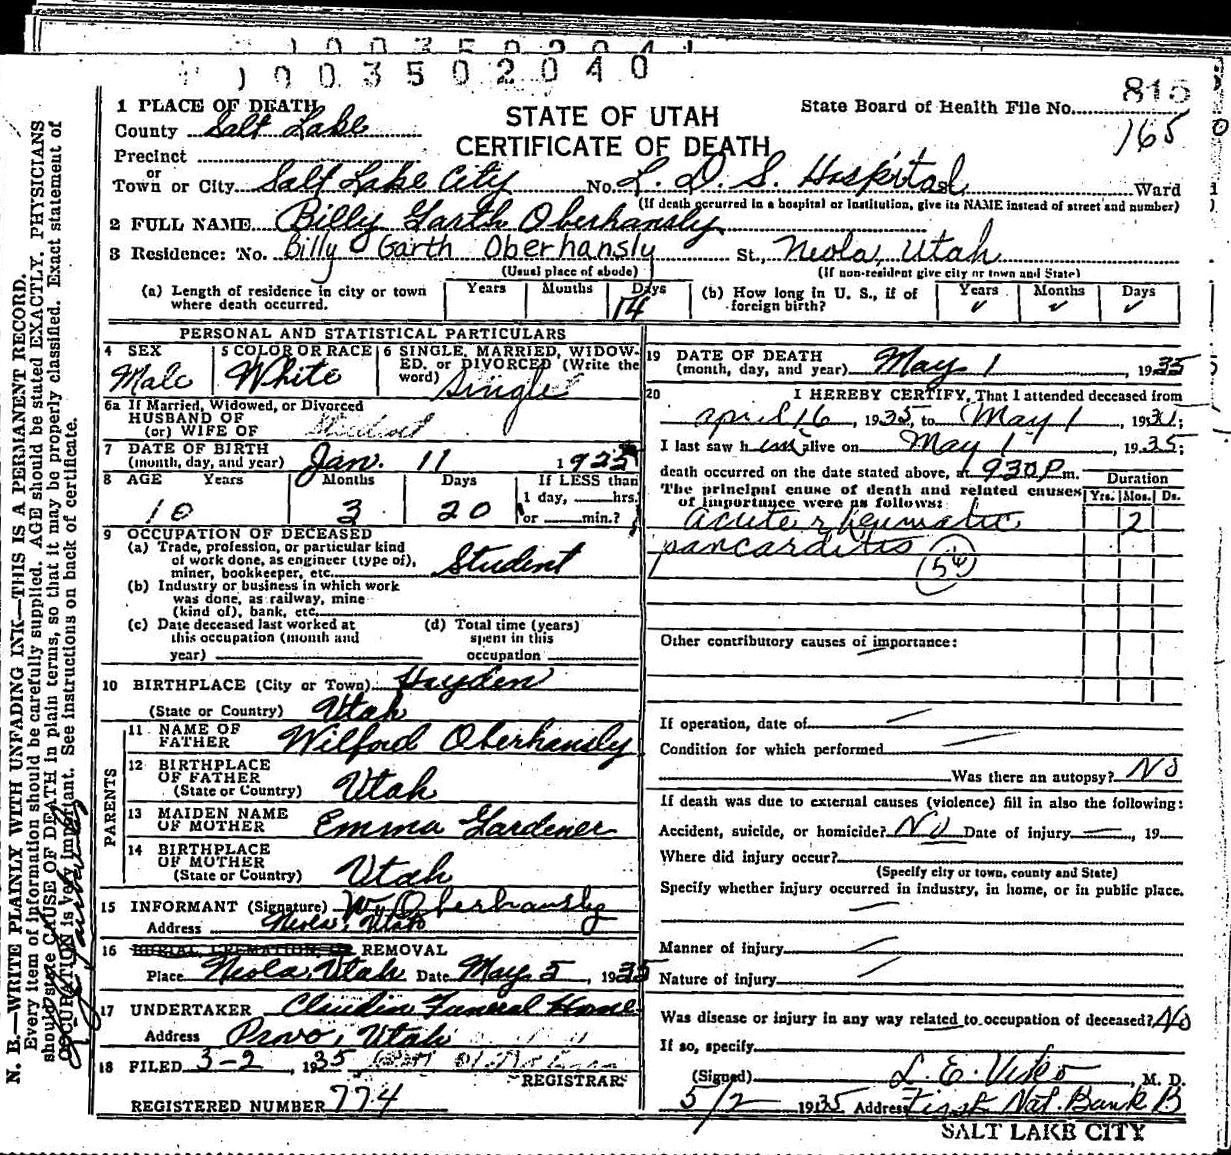 1003502041
1003502040
1 PLACE OF DEATH
County Salt Lake
Precinct
or
Town or City Salt Lake City No. L. D. S. Hospital Ward
(If death occurred in a hospital or institution, give its NAME instead of street and number)
STATE OF UTAH
CERTIFICATE OF DEATH
State Board of Health File No. 815
165
2 FULL NAME Billy Garth Oberhansly
3 Residence: No. Billy Garth Oberhansly St., Neola, Utah
(Usual place of abode) (If non-resident give city or town and State)
(a) Length of residence in city or town where death occurred. Years Months Days 14
(b) How long in U. S., if of foreign birth? Years ✓ Months ✓ Days ✓
PERSONAL AND STATISTICAL PARTICULARS
4 SEX Male
5 COLOR OR RACE White
6 SINGLE, MARRIED, WIDOW-
ED, or DIVORCED (Write the
word) Single
6a If Married, Widowed, or Divorced
HUSBAND OF
(or) WIFE OF
7 DATE OF BIRTH
(month, day, and year) Jan. 11 1925
8 AGE Years Months Days If LESS than
1 day, hrs.
or min.?
10 3 20
9 OCCUPATION OF DECEASED
(a) Trade, profession, or particular kind
of work done, as engineer (type of),
miner, bookkeeper, etc. Student
(b) Industry or business in which work
was done, as railway, mine
(kind of), bank, etc.
(c) Date deceased last worked at
this occupation (month and
year)
(d) Total time (years)
spent in this
occupation
10 BIRTHPLACE (City or Town) Hayden
(State or Country) Utah
PARENTS
11 NAME OF
FATHER Wilford Oberhansly
12 BIRTHPLACE
OF FATHER
(State or Country) Utah
13 MAIDEN NAME
OF MOTHER Emma Gardener
14 BIRTHPLACE
OF MOTHER
(State or Country) Utah
15 INFORMANT (Signature) W. Oberhansly
Address Neola, Utah
16 BURIAL, CREMATION, OR REMOVAL
Place Neola, Utah Date May 5, 1935
17 UNDERTAKER Claudin Funeral Home
Address Provo, Utah
18 FILED 3-2, 1935
REGISTRAR
REGISTERED NUMBER 774
19 DATE OF DEATH
(month, day, and year) May 1, 1935
20 I HEREBY CERTIFY, That I attended deceased from
april 16, 1935, to May 1, 193
I last saw him alive on May 1, 1935;
death occurred on the date stated above, at 930 P m.
The principal cause of death and related causes
of importance were as follows:
Duration
Yrs. Mos. Ds.
acute rheumatic 2
pancarditis
Other contributory causes of importance:
If operation, date of
Condition for which performed
Was there an autopsy? No
If death was due to external causes (violence) fill in also the following:
Accident, suicide, or homicide? No Date of injury , 19
Where did injury occur?
(Specify city or town, county and State)
Specify whether injury occurred in industry, in home, or in public place.
Manner of injury
Nature of injury
Was disease or injury in any way related to occupation of deceased? No
If so, specify
(Signed) L. E. Visko, M. D.
5/2 1935 Address First Nat. Bank B
SALT LAKE CITY
N. B.—WRITE PLAINLY WITH UNFADING INK—THIS IS A PERMANENT RECORD.
Every item of information should be carefully supplied. AGE should be stated EXACTLY. PHYSICIANS
should state CAUSE OF DEATH in plain terms, so that it may be properly classified. Exact statement of
OCCUPATION is very important. See instructions on back of certificate.